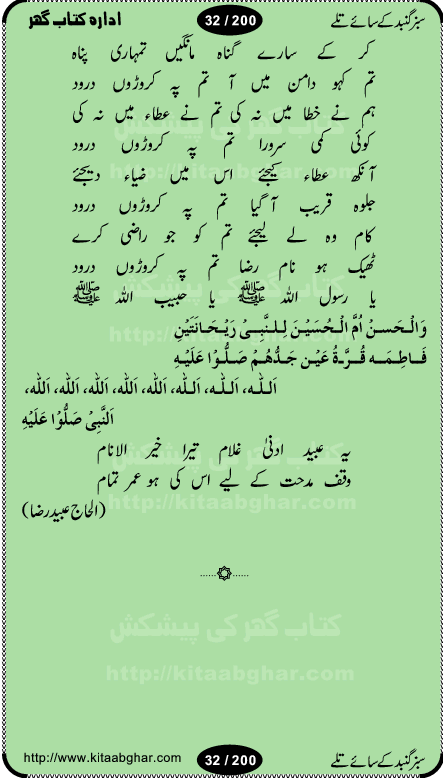 سبز گنبد کے سائے تلے 32 / 200 ادارہ کتاب گھر
کر کے سارے گناہ مانگیں تمہاری پناہ
تم کہو دامن میں آ تم پہ کروڑوں درود
ہم نے خطا میں نہ کی تم نے عطاء میں نہ کی
کوئی کمی سرورا تم پہ کروڑوں درود
آنکھ عطاء کیجئے اس میں ضیاء دیجئے
جلوہ قریب آ گیا تم پہ کروڑوں درود
کام وہ لے لیجئے تم کو جو راضی کرے
ٹھیک ہو نام رضا تم پہ کروڑوں درود
یا رسول اللہ ﷺ یا حبیب اللہ ﷺ
وَالْحَسَنْ اُمَّ الْحُسَیْنَ لِلنَّبِیْ رَیْحَانَتَیْنِ
فَاطِمَہ قُرَّۃُ عَیْن جَدُّھُمْ صَلُّوْا عَلَیْہِ
اَللہ، اَللہ، اَللہ، اَللہ، اَللہ، اَللہ، اَللہ، اَللہ، اَللہ،
اَلنَّبِیْ صَلُّوْا عَلَیْہِ
یہ عبید ادنیٰ غلام تیرا خیر الانام
وقف مدحت کے لیے اس کی ہو عمر تمام
(الحاج عبید رضا)
کتاب گھر کی پیشکش
http://kitaabghar.com
سبز گنبد کے سائے تلے 32 / 200 http://www.kitaabghar.com